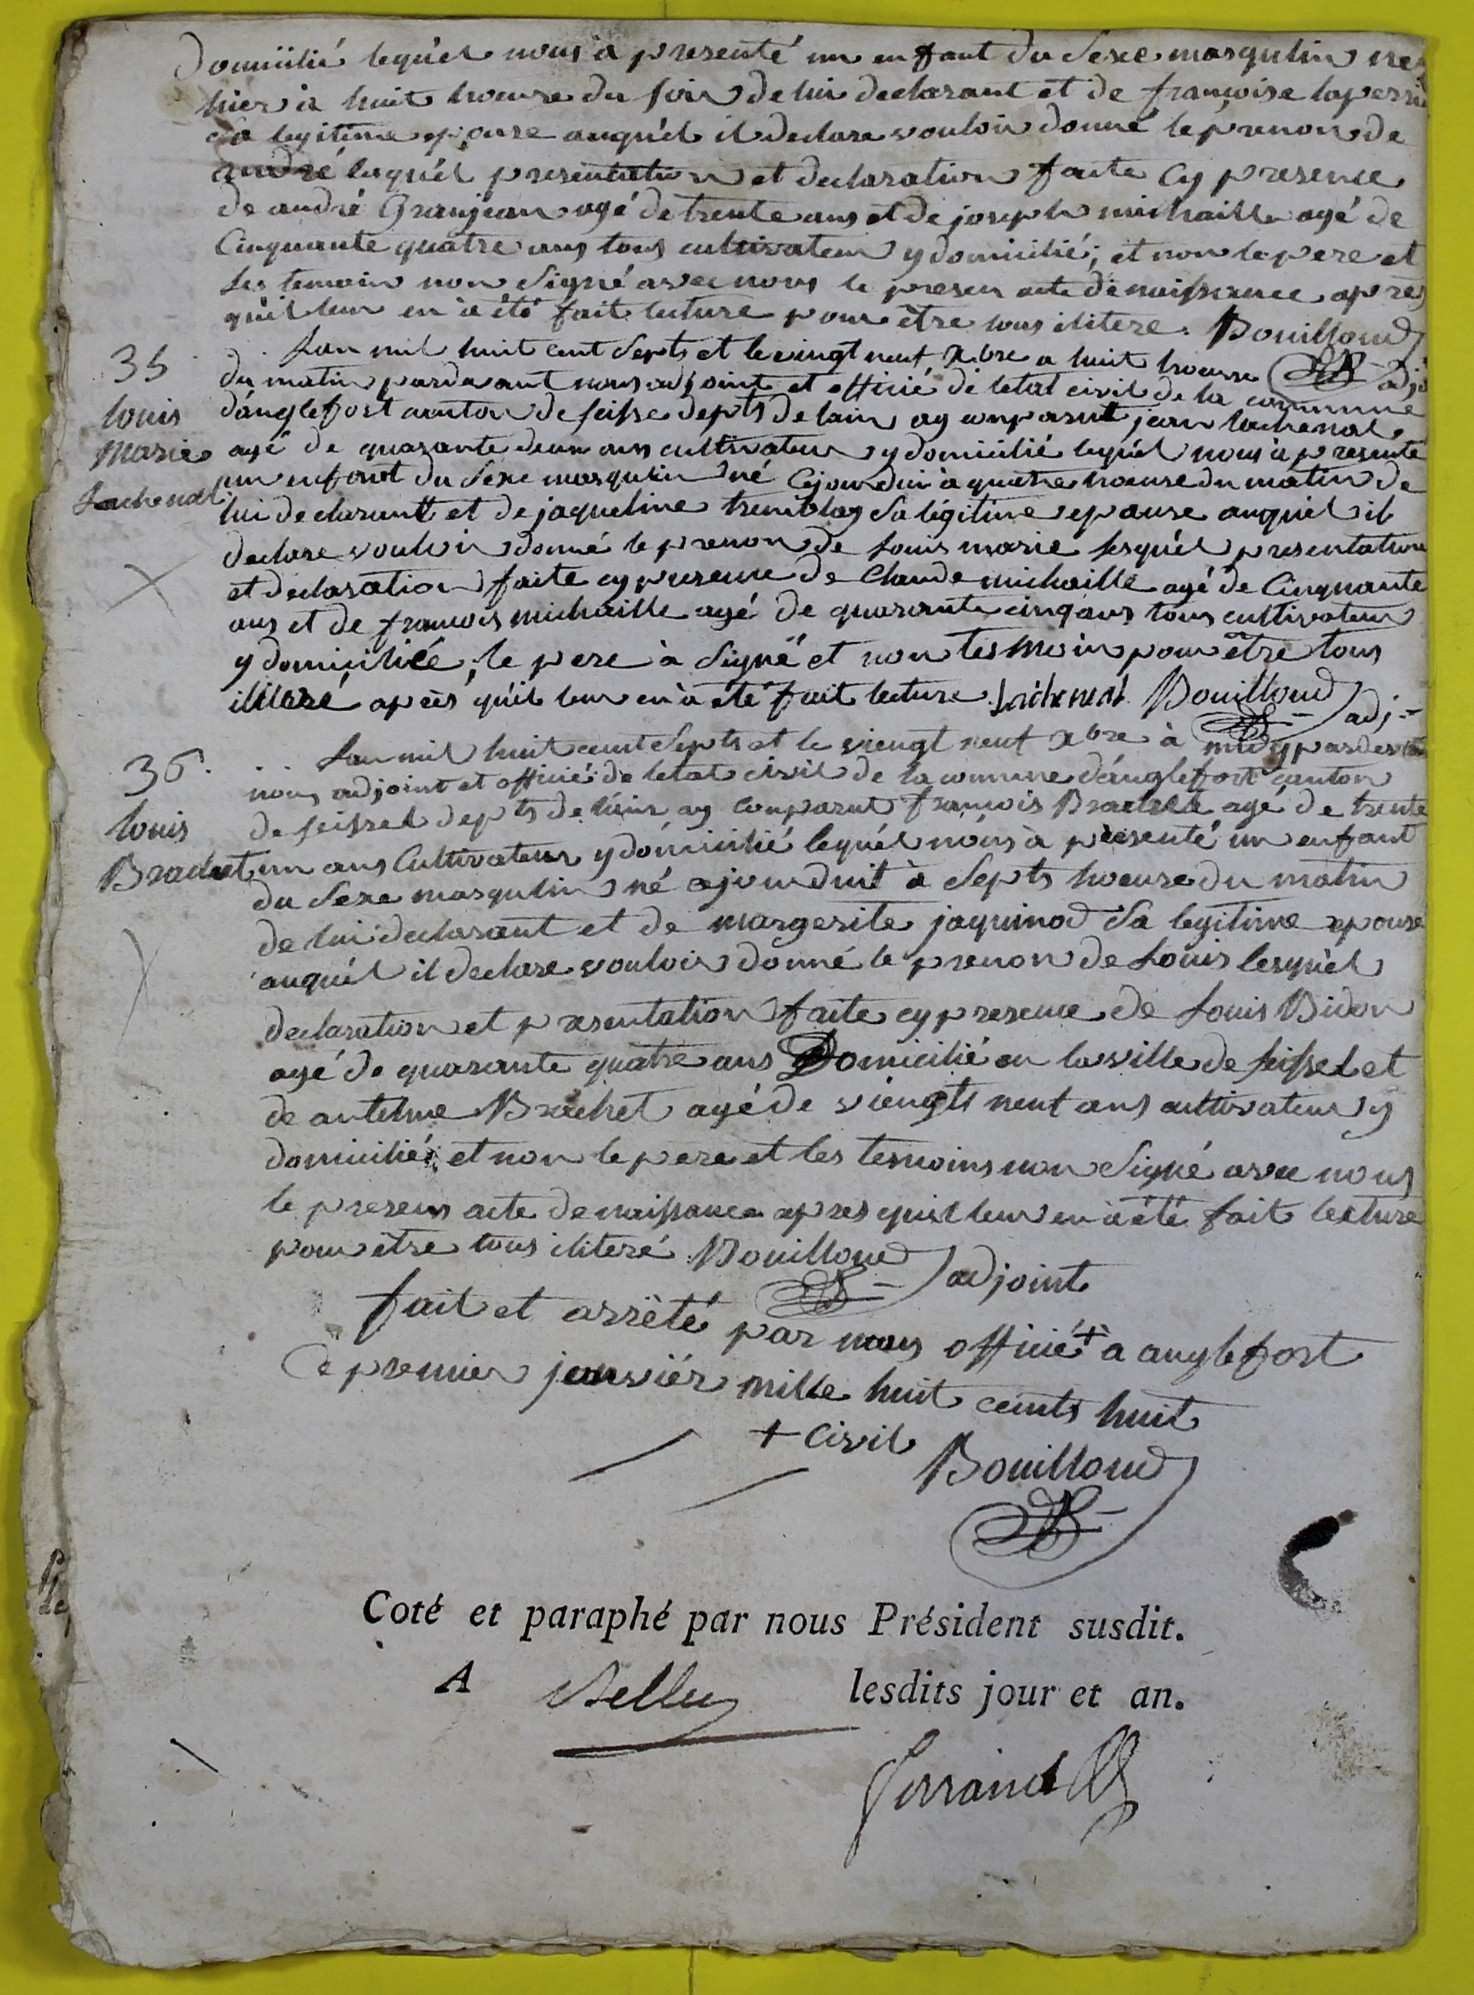 domiilié lequel nous a presenté un enfant du Sexe masqulin né
hier à huit heure du soir de lui declarant et de francoise laperri
sa legitime epouse auquel il declare vouloir donné le prenon de
andré lesquel presentation et declaration faite cy presence
de andré Granjean agé de trente ans et de joseph michaille agé de
Cinquante quatre ans tous cultivateur y domicilié, et non le pere et
les temoin non Signé avec nous le presen acte de naissance apres
quil leur en à été fait lecture pour être tous ilitere. Bouilloud
adj
35
louis
marie
Lachenal
Lan mil huit cent Septs et le vingt neuf Xbre a huit heure
du matin pardevant nous adjoint et officié de letat civil de la commune
d'anglefort canton de seisse depts de lain ay comparut jean lachenal
agé de quarante deux ans cultivateur y domicilié lequel nous à presenté
un enfant du Sexe masqulin né Cejourdui à quatre heure du matin de
lui declarant et de jaqueline tremblay Sa légitime epouse auquel il
declare vouloir donné le prenon de Louis marie lesquel presentation
et declaration faite cy presence de Claude michaille agé de Cinquante
ans et de francois michaille agé de quarante cinq ans tous cultivateur
y domicilié, le pere à Signé et non tesmoin pour être tous
illiteré apres quil leur en à été fait lecture Lachenal Bouilloud
adj
36
louis
Brachet
Lan mil huit cent Septs et le viengt neuf Xbre à midy pardevan
nous adjoint et officié de letat civil de la commune d'anglefort canton
de seissel depts de lain ay comparut francois Brachet agé de trente
un ans Cultivateur y domicilié lequel nous à presenté un enfant
du Sexe masqulin né cejourduit à Septs heure du matin
de lui declarant et de margerite jaquinod Sa legitime epouse
auquel il declare vouloir donné le prenon de Louis lesquel
declaration et presentation faite cy presence de Louis Bidon
agé de quarante quatre ans Domicilié en la ville de seissel et
de antelme Brachet agé de viengts neuf ans cultivateur y
domicilié et non le pere et les tesmoins non Signé avec nous
le presens acte de naissance apres quil leur en à été fait lecture
pour être tous ilideré Bouilloud adjoint
fait et arrêté par nous officié + a anglefort
Ce premier janviér mille huit ceints huit
+ Civil
Bouilloud
Coté et paraphé par nous Président susdit.
A Belley lesdits jour et an.
Ferrand